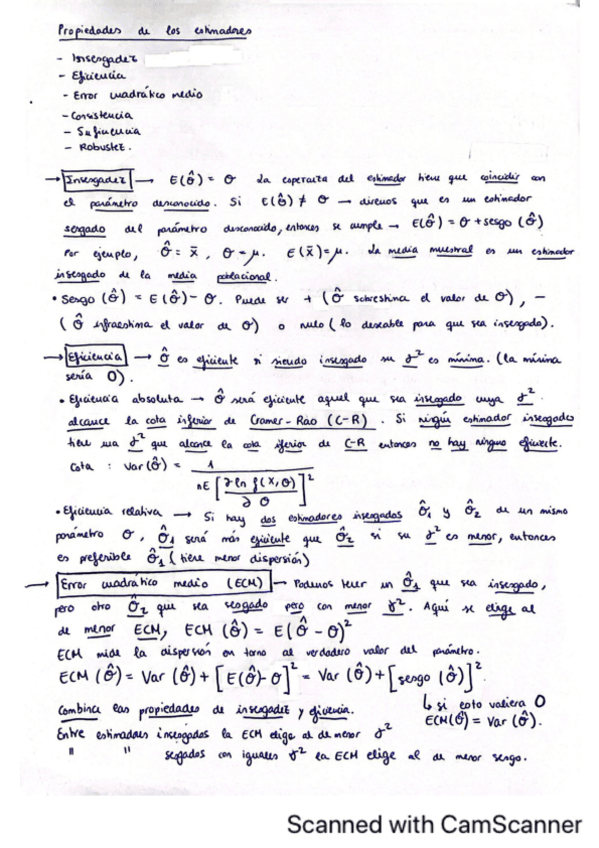 Propiedades de los estimadores
- Insesgadez
- Eficiencia
- Error cuadrático medio
- Consistencia
- Suficiencia
- Robustez.
→ Insesgadez → E(θ̂) = θ La esperanza del estimador tiene que coincidir con
el parámetro desconocido. Si E(θ̂) ≠ θ → diremos que es un estimador
sesgado del parámetro desconocido, entonces se cumple → E(θ̂) = θ + sesgo (θ̂)
Por ejemplo, θ̂ = x̄, θ = μ. E(x̄) = μ. La media muestral es un estimador
insesgado de la media poblacional.
• Sesgo (θ̂) = E(θ̂) - θ. Puede ser + (θ̂ sobrestima el valor de θ), -
(θ̂ infraestima el valor de θ) o nulo (lo deseable para que sea insesgado).
→ Eficiencia → θ̂ es eficiente si siendo insesgado su σ² es mínima. (la mínima
sería 0).
• Eficiencia absoluta → θ̂ será eficiente aquel que sea insesgado cuya σ²
alcance la cota inferior de Cramer-Rao (C-R). Si ningún estimador insesgado
tiene una σ² que alcance la cota iferior de C-R entonces no hay ninguno eficiente.
Cota : Var(θ̂) = 1 / nE [∂ ln f(X,θ) / ∂θ]²
• Eficiencia relativa → Si hay dos estimadores insesgados θ̂₁ y θ̂₂ de un mismo
parámetro θ, θ̂₁ será más eficiente que θ̂₂ si su σ² es menor, entonces
es preferible θ̂₁ (tiene menor dispersión)
→ Error cuadrático medio (ECM) → Podemos tener un θ̂₁ que sea insesgado,
pero otro θ̂₂ que sea sesgado pero con menor σ². Aquí se elige al
de menor ECM, ECM (θ̂) = E(θ̂ - θ)²
ECM mide la dispersión en torno al verdadero valor del parámetro.
ECM (θ̂) = Var (θ̂) + [E(θ̂) - θ]² = Var (θ̂) + [sesgo (θ̂)]².
↳ si esto valiera 0
ECM(θ̂) = Var (θ̂).
Combina las propiedades de insesgadez y eficiencia.
Entre estimadores insesgados la ECM elige al de menor σ²
" " sesgados con iguales σ² la ECM elige al de menor sesgo.
Scanned with CamScanner